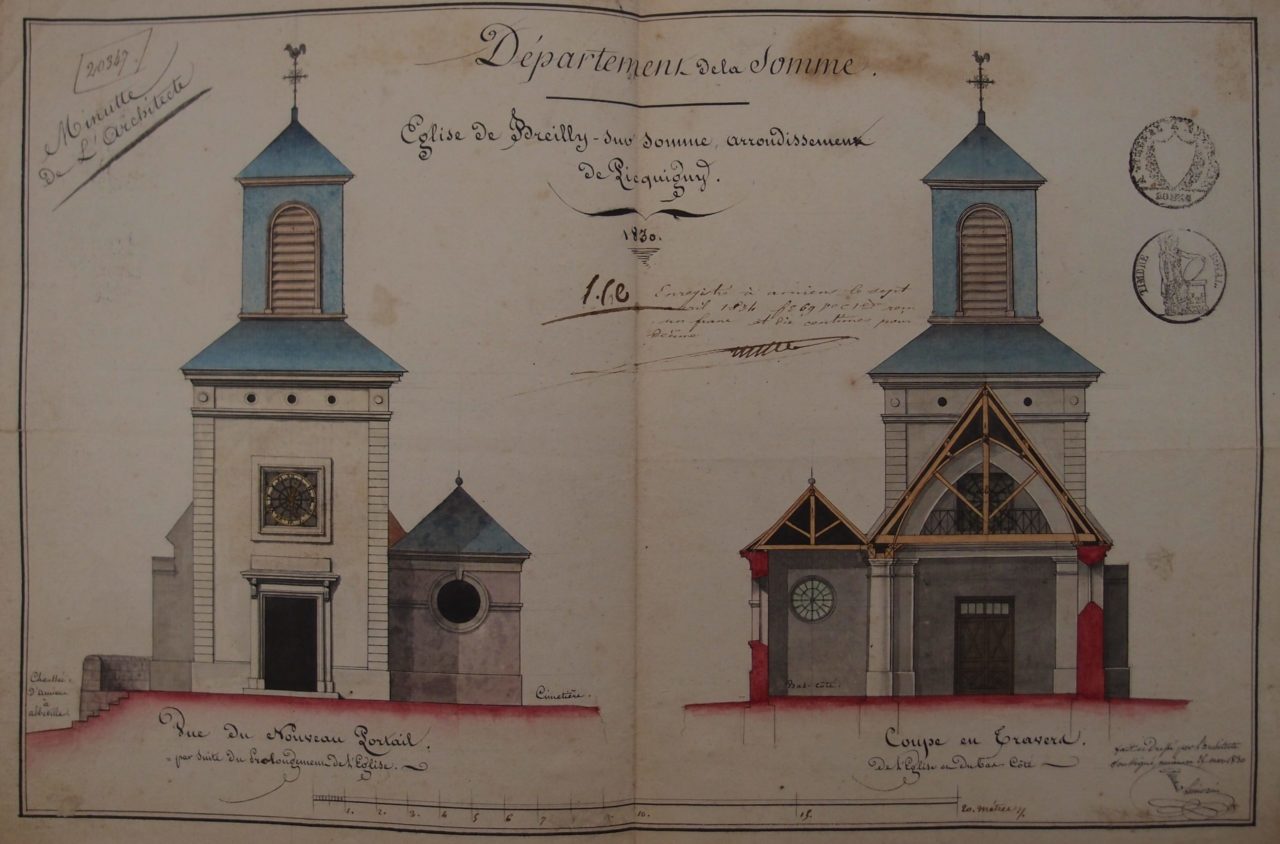 20347
Minutte
De L'Architecte
Département de la Somme.
Eglise de Breilly-sur Somme, arrondissement
de Picquigny.
1830.
Enregistré à amiens le sept
1834 f 69
un franc et dix centimes pour
TIMBRE ROYAL
Chaussée
D'amiens
à
abbeville
Cimetière.
Bas-côté.
Vue du Nouveau Portail.
par suite du Prolongement de l'Eglise.
Coupe en Travers.
De l'Eglise et Du Bas-Côté
fait et Dressé par l'architecte
Soussigné 1830
1. 2. 3. 4 5 6 7 10. 15. 20. mètres